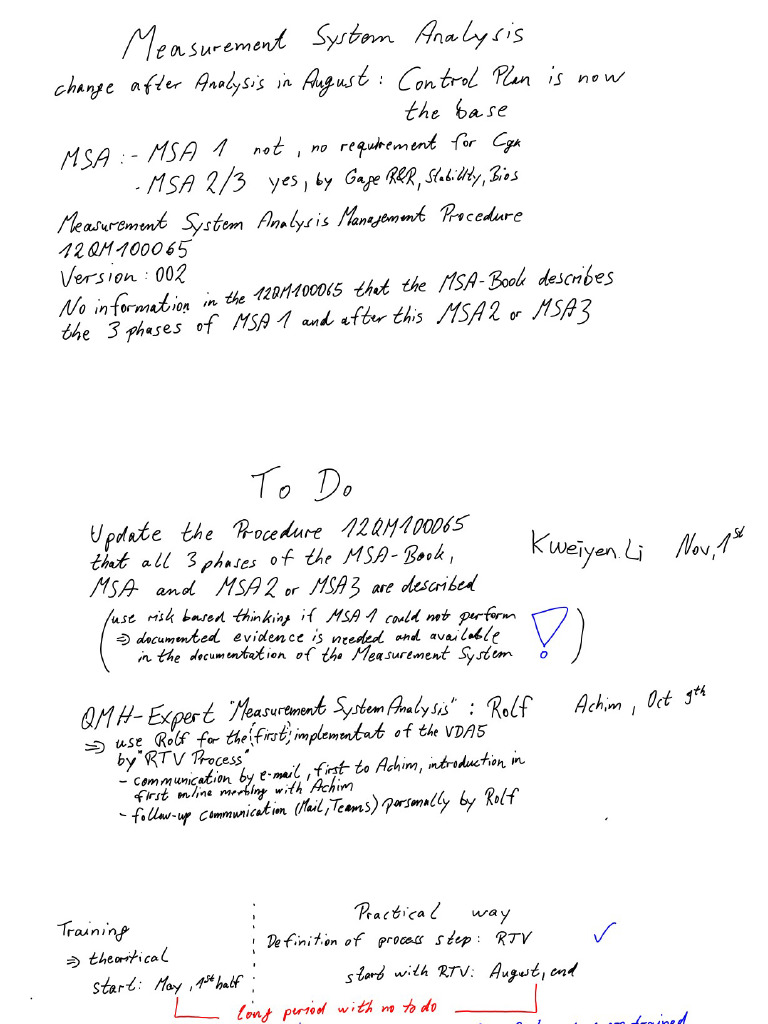 Measurement System Analysis
change after Analysis in August: Control Plan is now
the base
MSA :- MSA 1 not, no requirement for Cgk
- MSA 2/3 yes, by Gage R&R, Stability, Bios
Measurement System Analysis Management Procedure
12QM100065
Version: 002
No information in the 12QM100065 that the MSA-Book describes
the 3 phases of MSA 1 and after this MSA2 or MSA3
To Do
Update the Procedure 12QM100065
that all 3 phases of the MSA-Book,
MSA and MSA2 or MSA3 are described
Kweiyen.Li Nov, 1st
(use risk based thinking if MSA 1 could not perform
⇒ documented evidence is needed and available
in the documentation of the Measurement System !)
QMH-Expert "Measurement System Analysis" : Rolf Achim, Oct 9th
⇒ use Rolf for the (first) implementat of the VDA5
by "RTV Process"
- communication by e-mail, first to Achim, introduction in
first online meeting with Achim
- follow-up communication (Mail, Teams) personally by Rolf
Training
⇒ theoritical
start: May, 1st half
Practical way
Definition of process step: RTV ✓
start with RTV: August, end
long period with no to do
trained